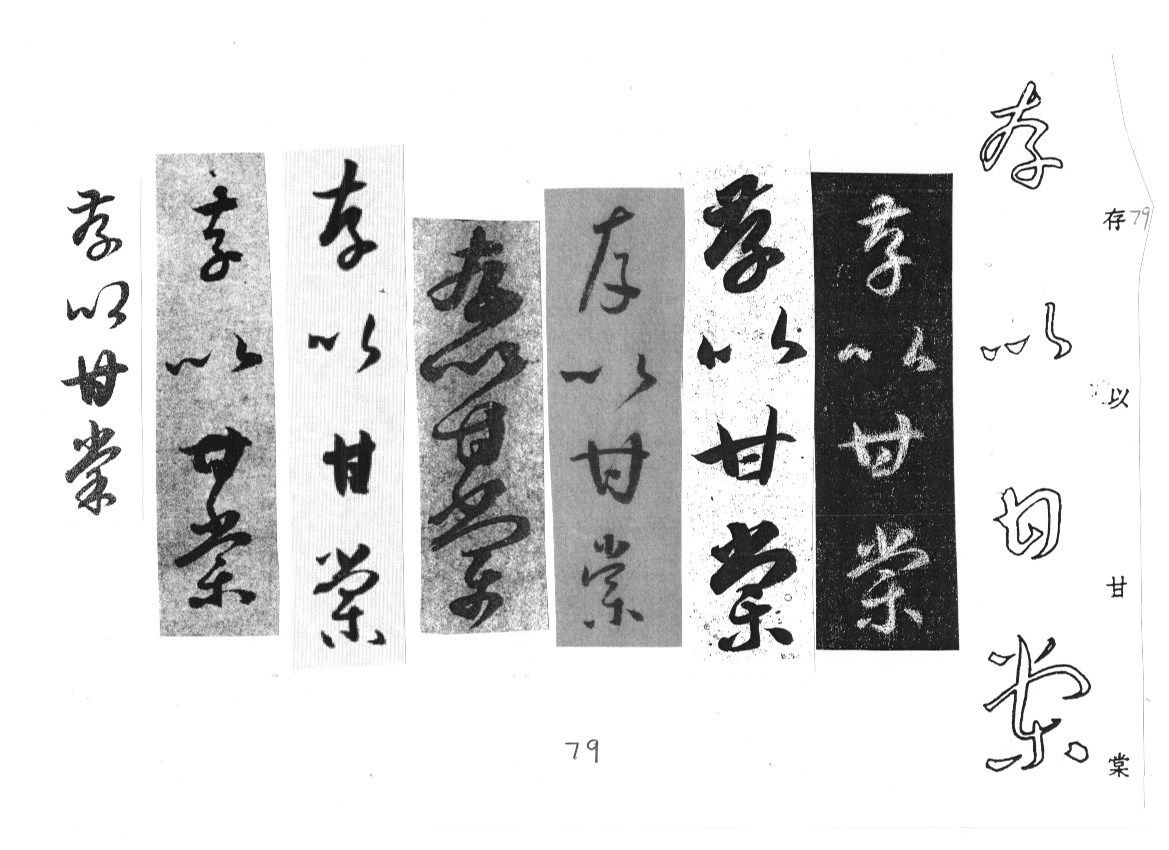 存 79
以
甘
棠
存以甘棠
存以甘棠
存以甘棠
存以甘棠
存以甘棠
存以甘棠
存以甘棠
存以甘棠
79